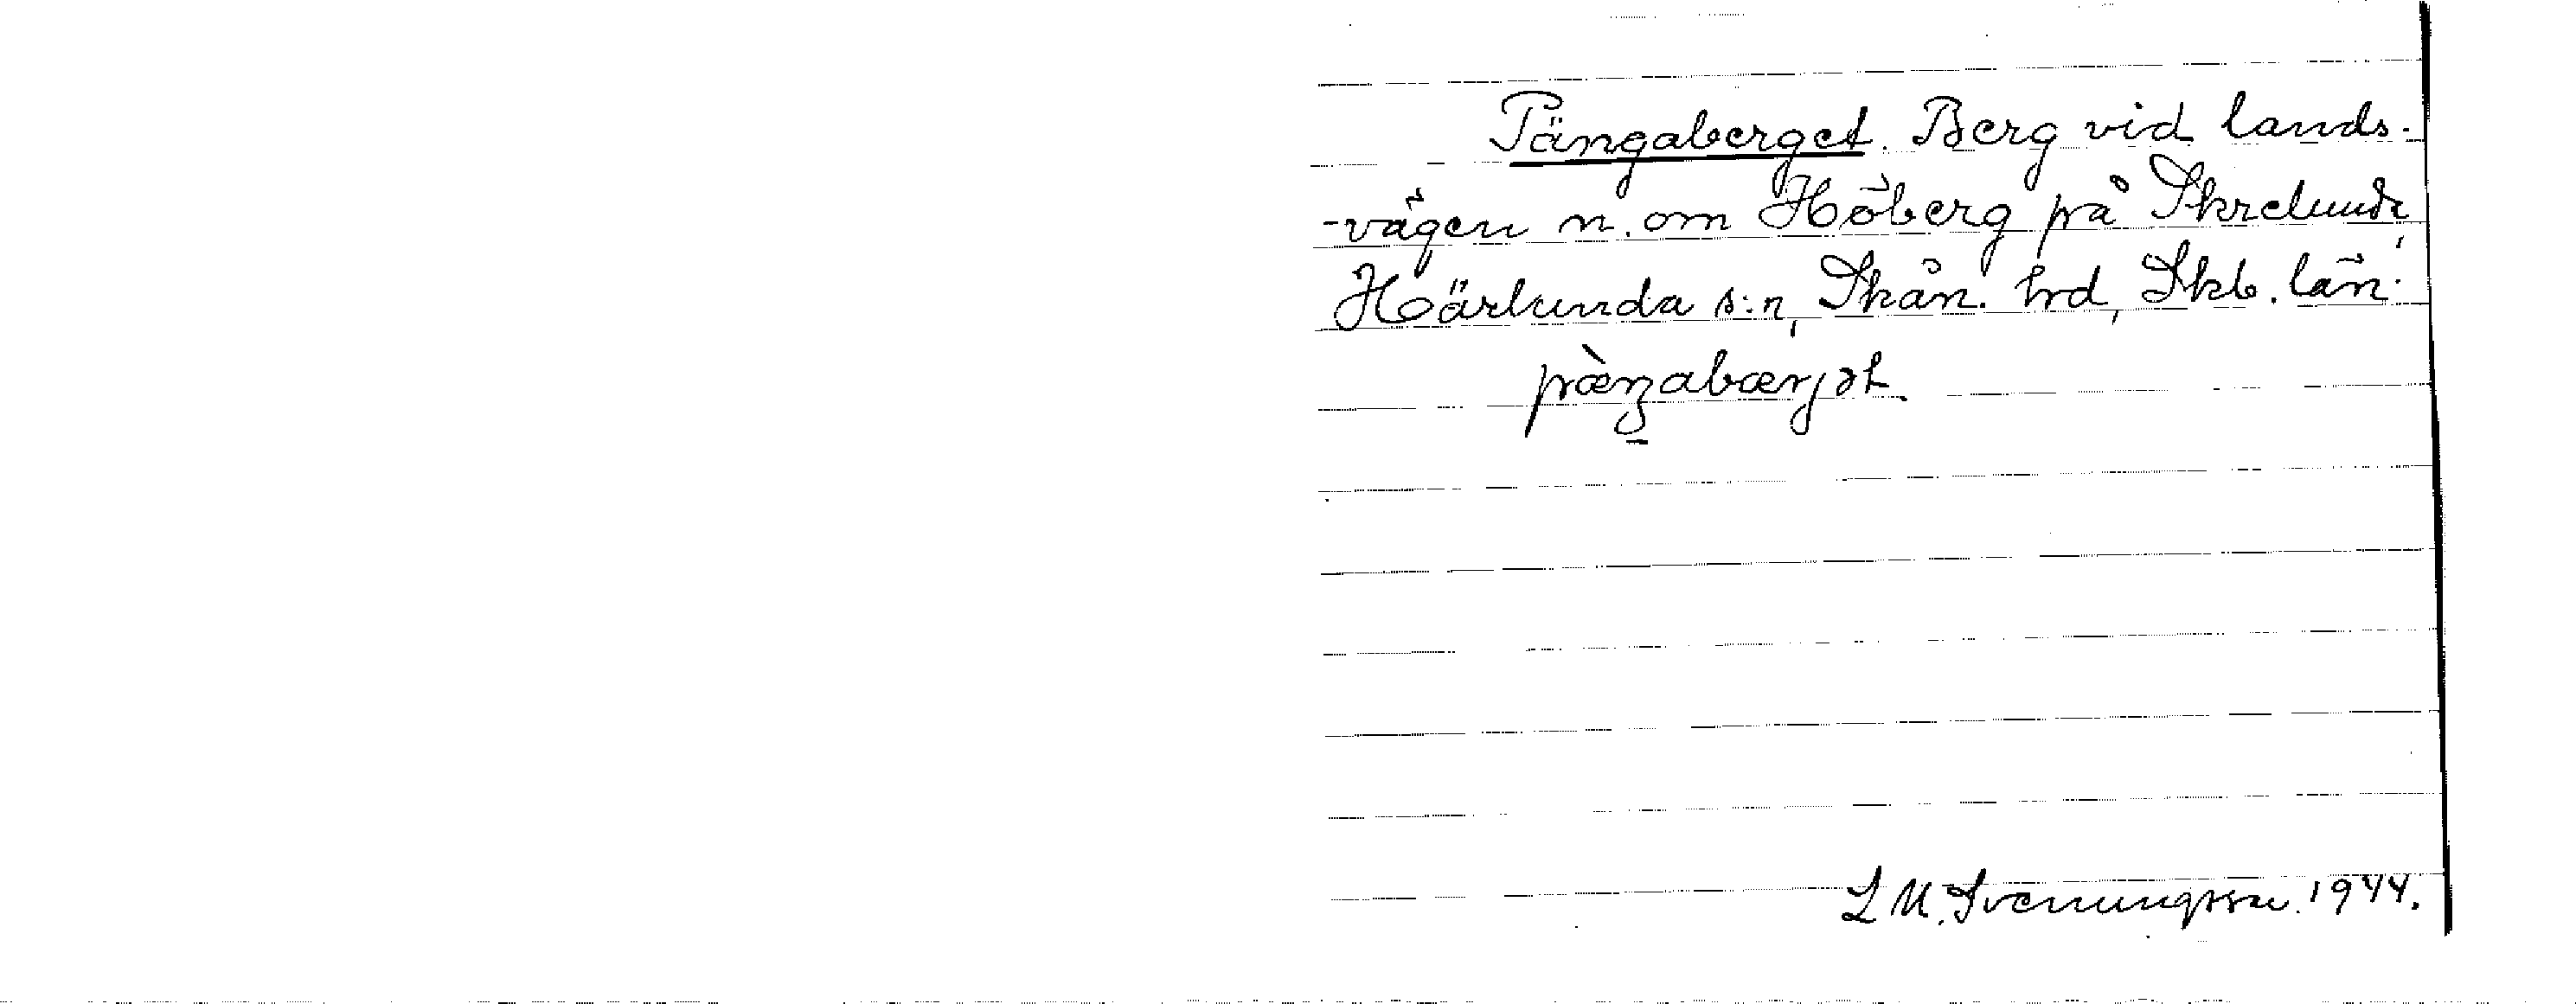 Pängaberget. Berg vid lands-
-vägen n. om Höberg på Skrelunda,
Härlunda s:n, Skån. hrd, Skb. län.
pæ̀ŋabærjət
L M. Svenungsson. 1944.